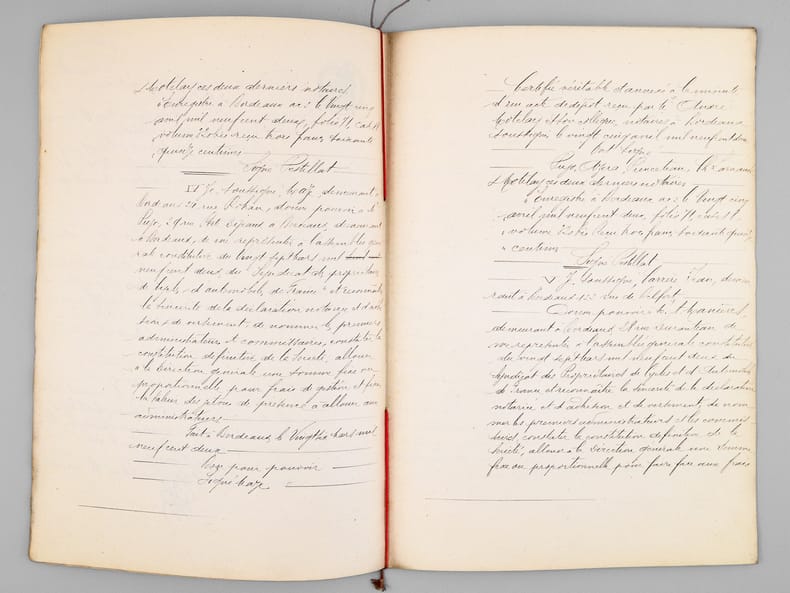 & Motelay ces deux derniers notaires
Enregistré à Bordeaux a.c. le Vingt cinq
avril mil neuf cent deux, folio 71, case 11
volume reçu trois francs soixante
quinze centimes
Signé Pestillat
VI Je soussigné, Maze, demeurant
Bordeaux 29 rue Rohan, donne pouvoir à M.
Pujo, 29 rue à Bordeaux, demeurant
à Bordeaux, de me représenter à l'assemblée géné
rale constitutive du Vingt sept mars mil
neuf cent deux, du Syndicat de propriétaires
de Cycles & d'automobiles de France et reconnaître
la sincérité de la déclaration notariée et d'adhé
sions de versement, de nommer les premiers
administrateurs et commissaires, constater la
constitution définitive de la Société, allouer
à la Direction générale une somme fixe ou
proportionnelle, pour frais de gestion et fixer
la valeur des jetons de présence à allouer aux
administrateurs
Fait à Bordeaux, le Vingt six Mars mil
neuf cent deux
Bon pour pouvoir
Signé Maze
Certifié véritable & annexé à la minute
d'un acte de dépôt reçu par Me André
Motelay & son collègue, notaires à Bordeaux
soussignés, le vingt cinq avril mil neuf cent deux
Ont signé
Pujo, Peyrelongue
& Motelay ces deux derniers notaires
Enregistré à Bordeaux a.c. le Vingt cinq
avril mil neuf cent deux, folio 71, case 11
volume reçu trois francs soixante quinze
centimes
Signé Pestillat
V Je soussigné, Carrée Jean, demeu
rant à Bordeaux 122 rue de Belfort
Donne pouvoir à M. Manières,
demeurant à Bordeaux 21 rue Duranteau de
me représenter à l'assemblée générale constitutive
du vingt sept mars mil neuf cent deux du
Syndicat des Propriétaires de Cycles et d'Automobiles
de France et reconnaître la sincérité de la déclaration
notariée et d'adhésion et de versement, de nom
mer les premiers administrateurs et les commis
saires, constater la constitution définitive de la
Société, allouer à la Direction générale une somme
fixe ou proportionnelle pour faire face aux frais